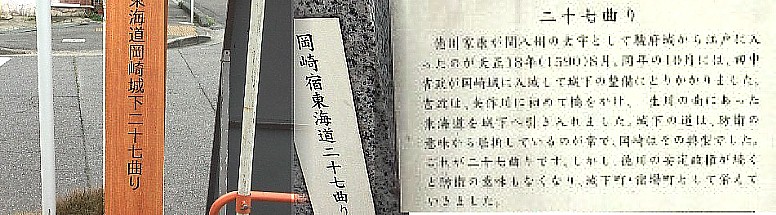 東海道岡崎城下二十七曲り
岡崎宿東海道二十七曲り
二十七曲り
徳川家康が関八州の太守として駿府城から江戸に入
ったのが天正18年(1590)8月、同年の10月には、田中
吉政が岡崎城に入城して城下の整備にとりかかりました。
吉政は、矢作川に初めて橋をかけ、生川の南にあった
東海道を城下へ引き入れました。城下の道は、防衛の
意味から屈折しているのが常で、岡崎はその典型でした。
これが二十七曲りです。しかし、徳川の安定政権が続く
と防衛の意味もなくなり、城下町・宿場町として栄えて
いきました。